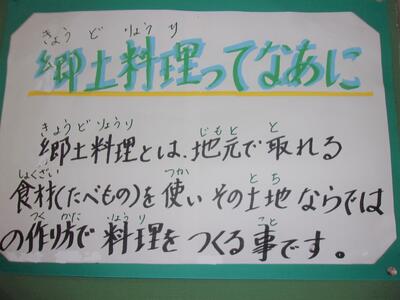 きょうどりょうり
郷土料理ってなあに
きょうどりょうり じもと と
郷土料理とは、地元で取れる
しょくざい つか とち
食材(たべもの)を使い その土地ならでは
つく かた りょうり こと
の作り方で 料理を つくる事です。